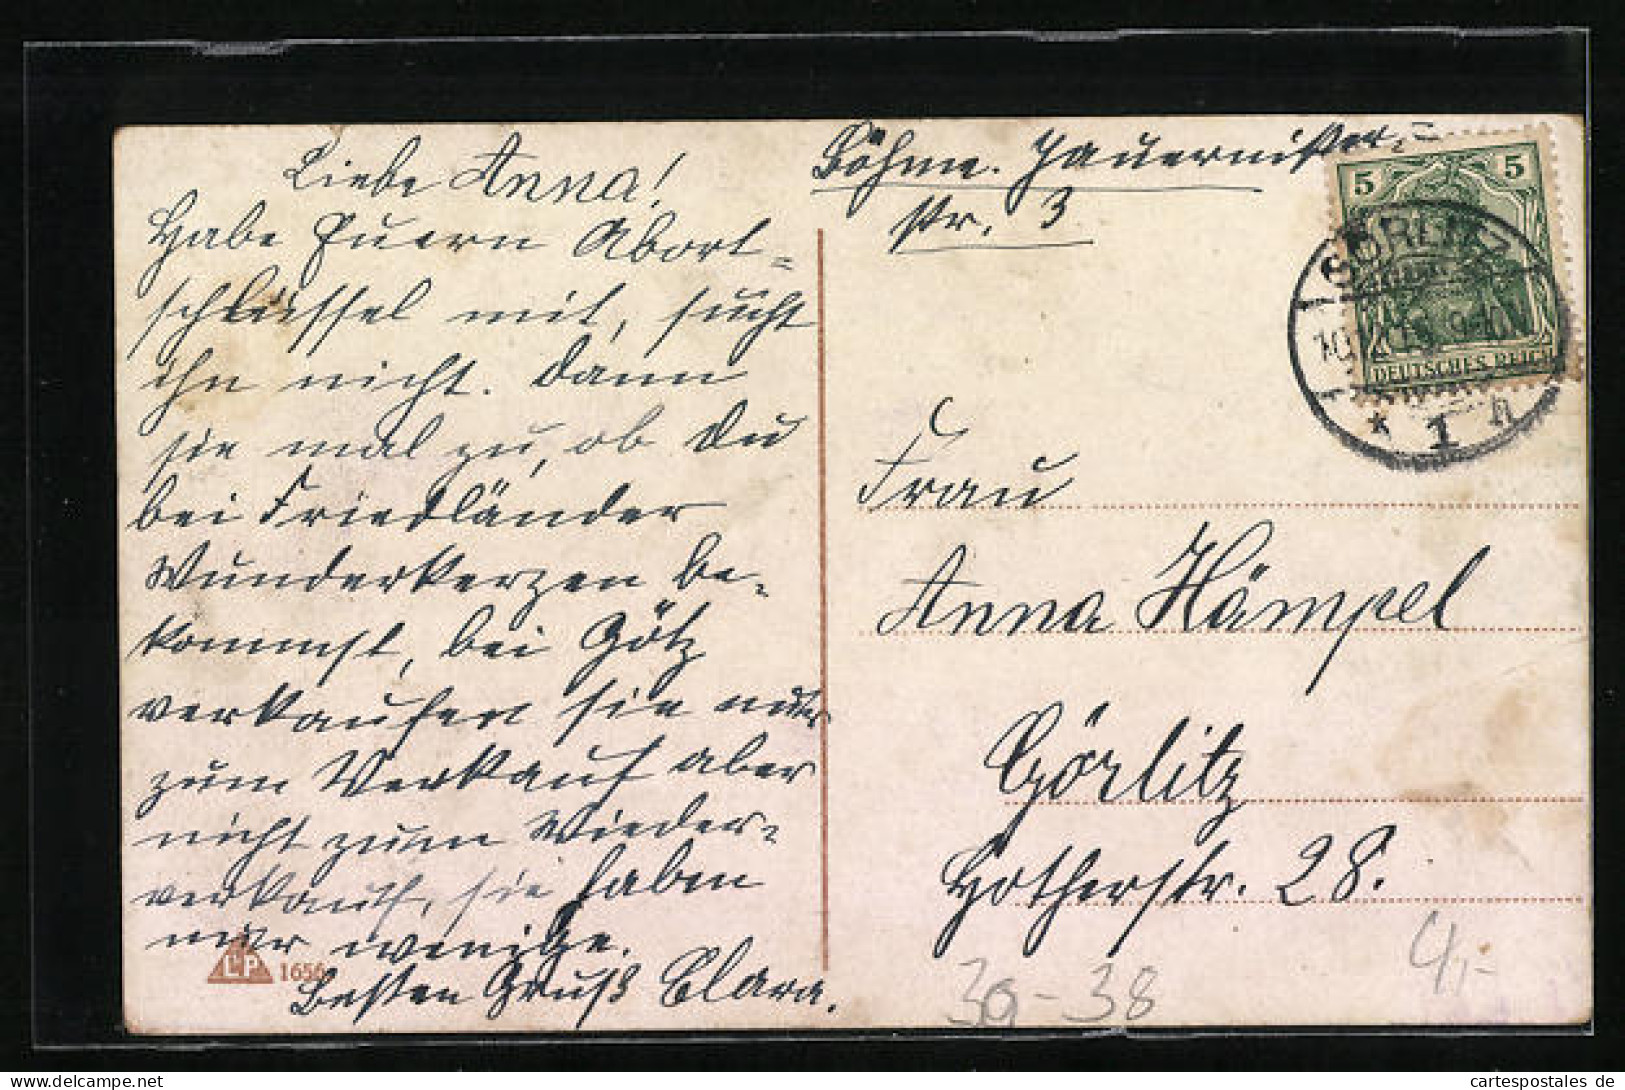 Liebe Anna!
Habe Euern Abort-
schlüssel mit, sucht
ihn nicht. Dann
sie mal zu, ob Du
bei Friedländer
Wunderkerzen be-
kommst, bei Götz
verkaufen sie nur
zum Verkauf aber
nicht zum Wieder-
verkauf, sie haben
nur wenige.
Besten Gruß Clara.
LP 1656
Böhme. Jauerniker-
str. 3
5 5
GÖRLITZ
DEUTSCHES REICH
* 1 h
Frau
Anna Hämpel
Görlitz
Hotherstr. 28.
39-38
4,-
cartespostales.de